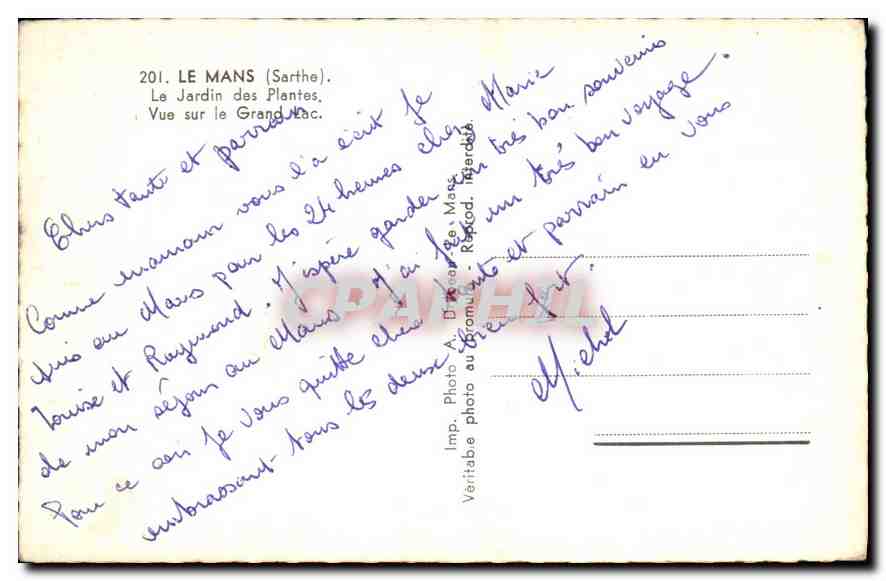 201. LE MANS (Sarthe).
Le Jardin des Plantes.
Vue sur le Grand Lac.
Chers tante et parrain
Comme maman vous l'a écrit je
suis au Mans pour les 24 heures chez Marie
Louise et Raymond. J'espère garder un très bon souvenirs
de mon séjour au Mans. J'ai fait un très bon voyage.
Pour ce soir je vous quitte chère tante et parrain en vous
embrassant tous les deux bien fort.
Michel
Imp. Photo A. - Le Mans
Véritable photo au bromure - Reprod. interdite.
CPAPHIL